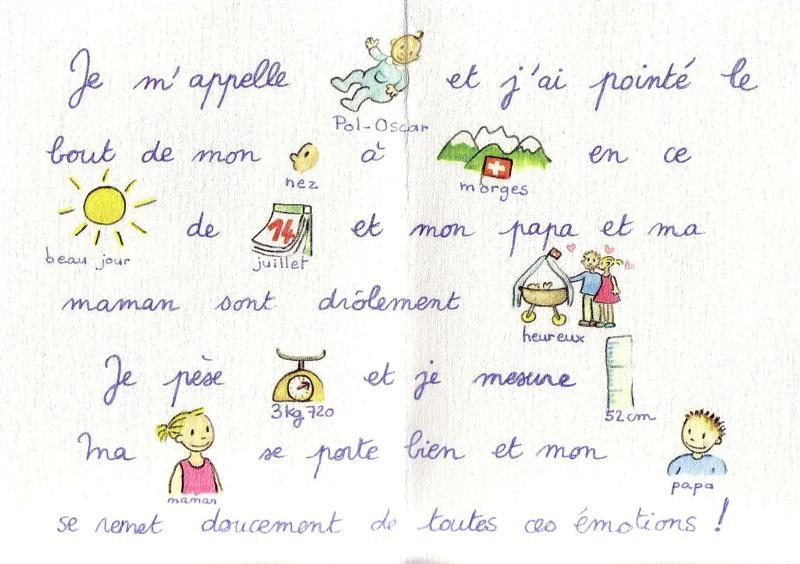 Je m'appelle Pol-Oscar et j'ai pointé le
bout de mon nez à morges en ce
beau jour de 14 juillet et mon papa et ma
maman sont drôlement heureux
Je pèse 3kg720 et je mesure 52cm
Ma maman se porte bien et mon papa
se remet doucement de toutes ces émotions !